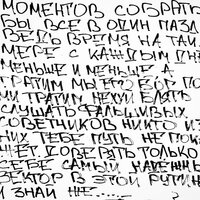 МОМЕНТОВ СОБРАТЬ
БЫ ВСЕ В ОДИН ПАЗЛ
ВЕДЬ ВРЕМЯ НА ТАЙ
МЕРЕ С КАЖДЫМ ДНЕ
МЕНЬШЕ И МЕНЬШЕ А
ТРАТИМ МЫ ЕГО ВОТ ПО
ТРАТИМ
СЛУШАТЬ ФАЛЬШИВЫХ
СОВЕТНИКОВ НИКТО ИЗ
НИХ ТЕБЕ ПУТЬ НЕ ПОК
ЖЕТ ДОВЕРЯТЬ ТОЛЬКО
СЕБЕ САМЫЙ НАДЕЖНЫ
ВЕКТОР В ЭТОЙ РУТИН
И ЗНАЙ НЕ